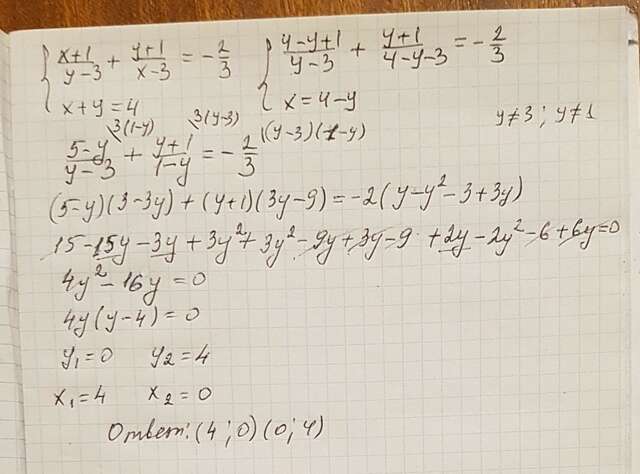 { (x+1)/(y-3) + (y+1)/(x-3) = -2/3   { (4-y+1)/(y-3) + (y+1)/(4-y-3) = -2/3
x+y=4   x=4-y   y≠3 ; y≠1
(5-y)/(y-3) \3(1-y) + (y+1)/(1-y) \3(y-3) = -2/3 \(y-3)(1-y)
(5-y)(3-3y) + (y+1)(3y-9) = -2(y-y²-3+3y)
15-15y-3y+3y²+3y²-9y+3y-9+2y-2y²-6+6y=0
4y²-16y=0
4y(y-4)=0
y₁=0   y₂=4
x₁=4   x₂=0
Ответ: (4;0)(0;4)